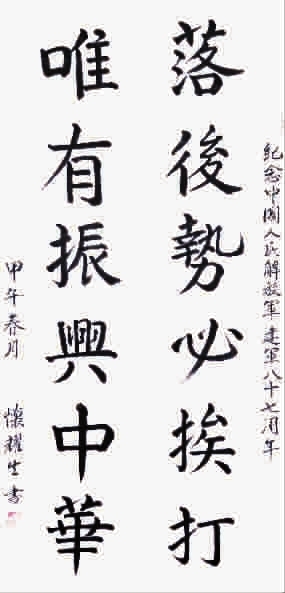 紀念中國人民解放軍建軍八十七周年
落後勢必挨打
唯有振興中華
甲午春月
懷耀生書